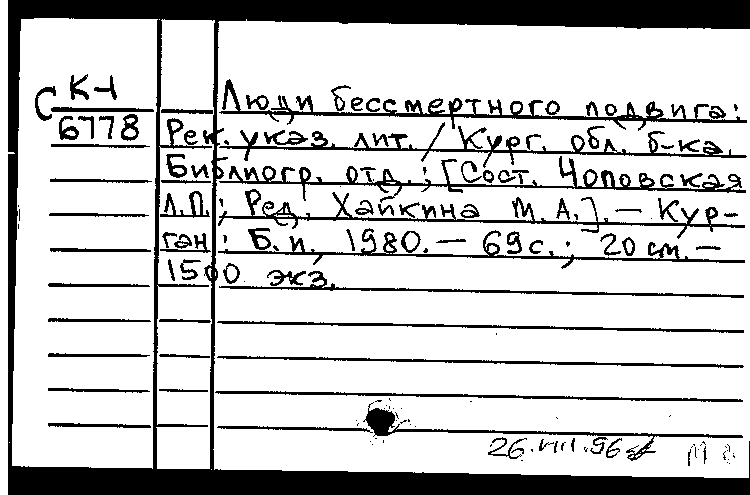 С К-1
6778
Люди бессмертного подвига:
Рек. указ. лит. / Кург. обл. б-ка.
Библиогр. отд.; [Сост. Чоповская
Л.П.; Ред. Хайкина М.А.]. — Кур-
ган: Б.и., 1980. — 69 с.; 20 см. —
1500 экз.
26.VIII.96